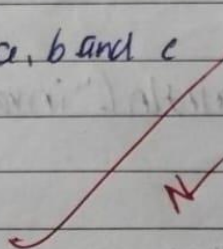 a, b and c
N